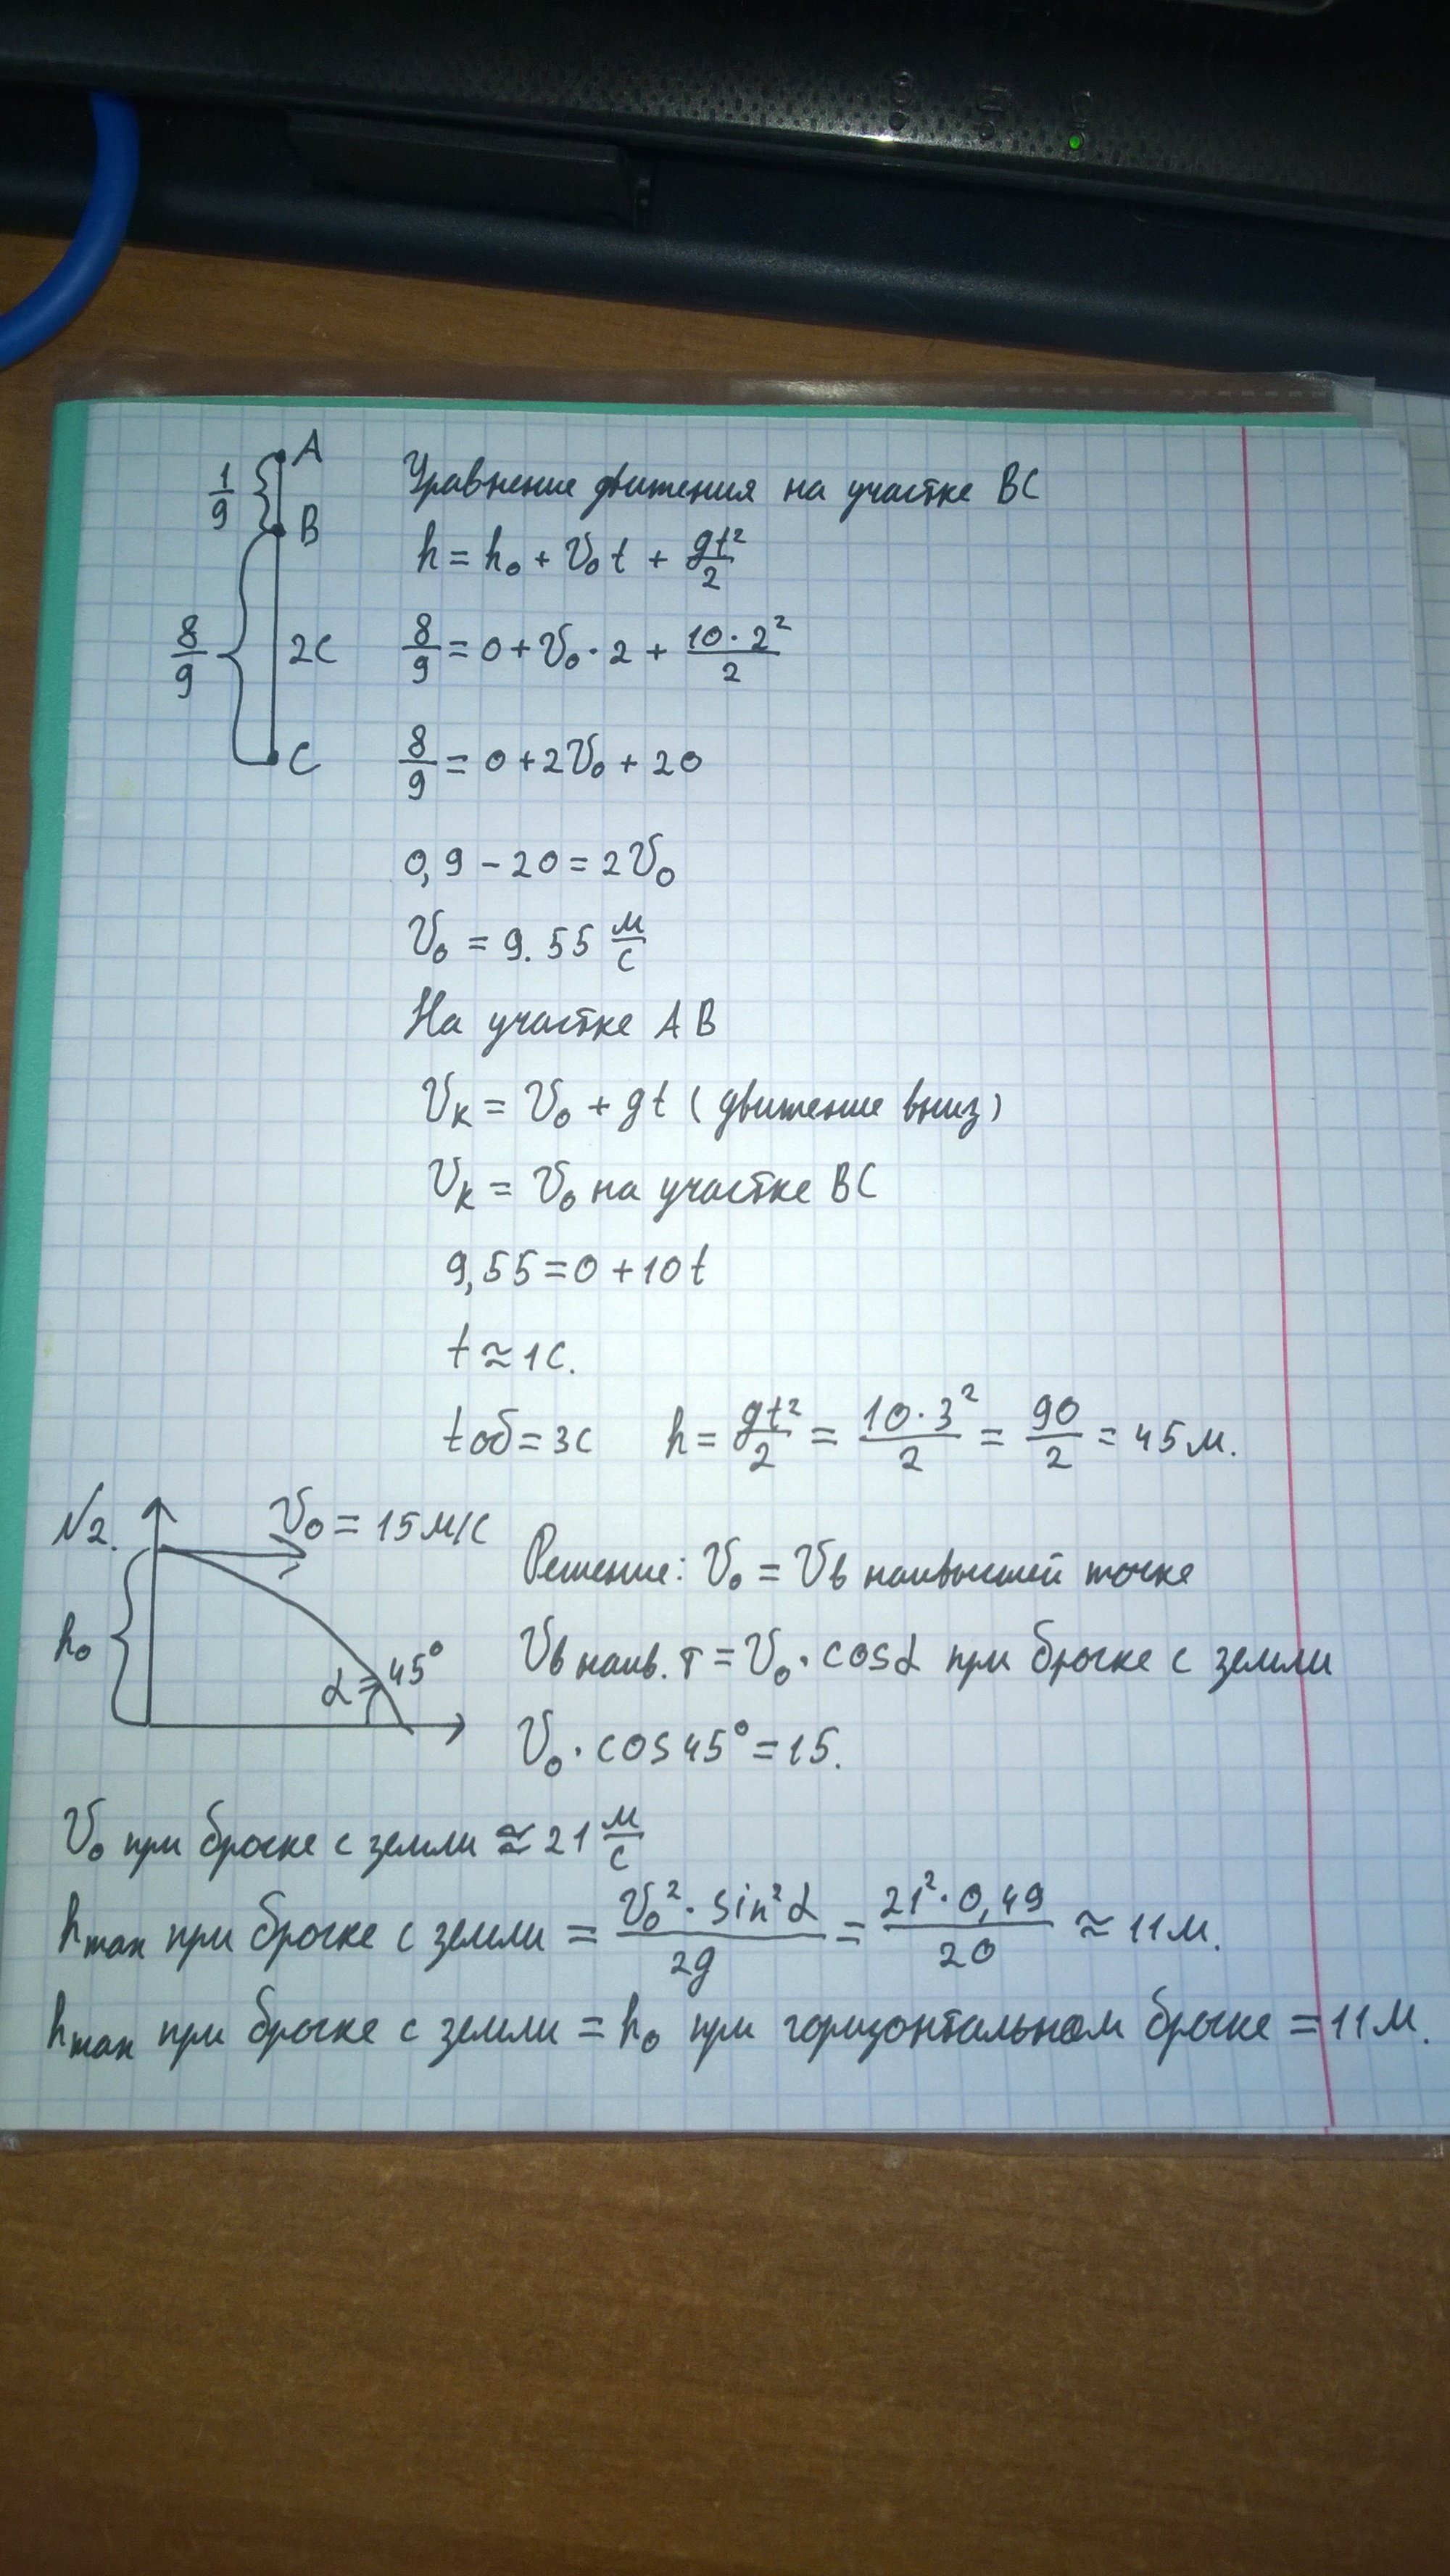 A
1/9
B
8/9
2с
C
Уравнение движения на участке BC
h = h₀ + V₀t + gt²/2
8/9 = 0 + V₀·2 + 10·2²/2
8/9 = 0 + 2V₀ + 20
0,9 − 20 = 2V₀
V₀ = 9.55 м/с
На участке AB
Vк = V₀ + gt (движение вниз)
Vк = V₀ на участке BC
9,55 = 0 + 10t
t ≈ 1с.
tоб = 3с h = gt²/2 = 10·3²/2 = 90/2 = 45м.
N2.
V₀ = 15м/с
h₀
α = 45°
Решение: V₀ = Vв наивысшей точке
Vв наив. т = V₀·cosα при броске с земли
V₀·cos45° = 15.
V₀ при броске с земли ≈ 21 м/с
hmax при броске с земли = V₀²·sin²α/2g = 21²·0,49/20 ≈ 11м.
hmax при броске с земли = h₀ при горизонтальном броске = 11м.